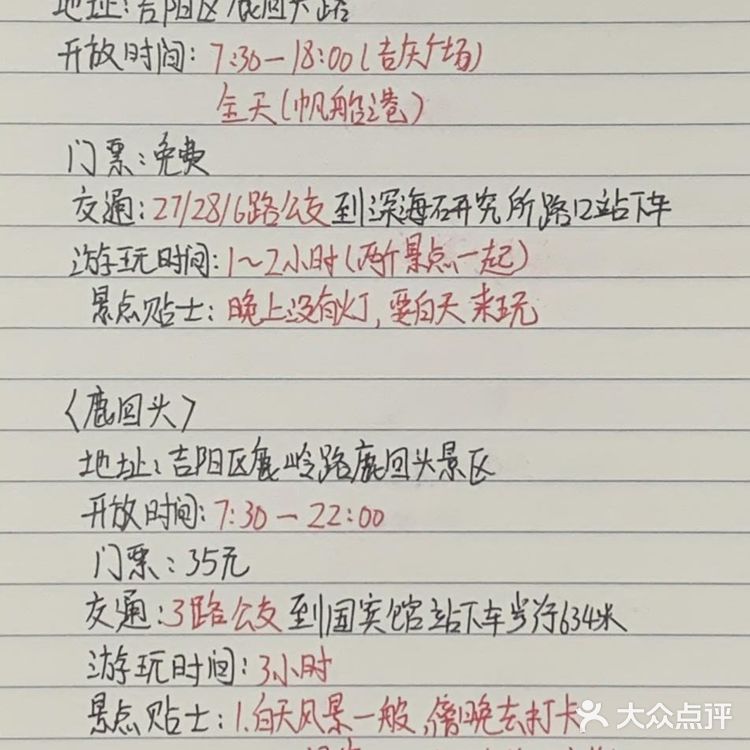 地址:吉阳区鹿回头路
开放时间:7:30—18:00(吉庆广场)
全天(帆船港)
门票:免费
交通:27/28/6路公交到深海研究所路口站下车
游玩时间:1~2小时(两个景点一起)
景点贴士:晚上没有灯,要白天来玩
〈鹿回头〉
地址:吉阳区鹿岭路鹿回头景区
开放时间:7:30—22:00
门票:35元
交通:3路公交到国宾馆站下车步行634米
游玩时间:3小时
景点贴士:1.白天风景一般,傍晚去打卡
大众点评